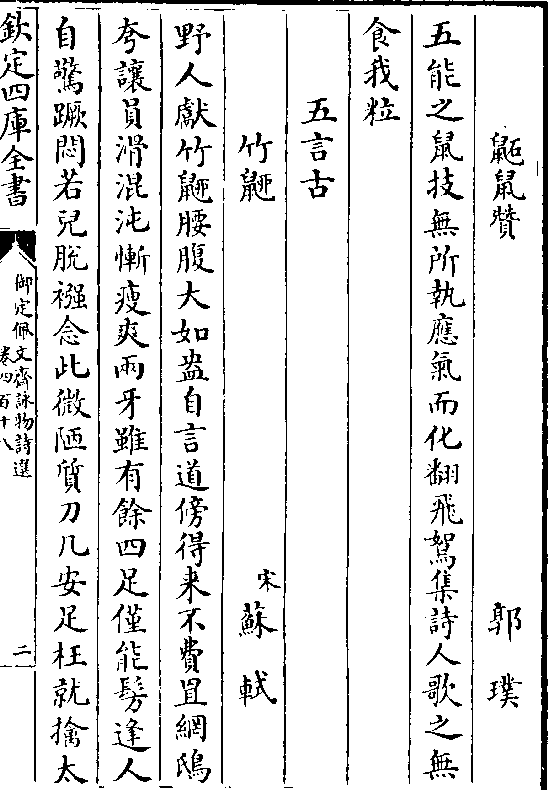 鼫鼠贊 郭璞
五能之鼠技無所執應氣而化翻飛鴽集詩人歌之無
食我粒
五言古
竹䶉 宋 蘇軾
野人獻竹䶉腰腹大如盎自言道傍得来不費罝網鴟
夸讓員滑混沌慚瘦爽兩牙雖有餘四足僅能髣逢人
自驚蹶悶若兒脫襁念此微陋質刀几安足枉就擒太
欽定四庫全書
御定佩文齋詠物詩選
卷四百十八
二